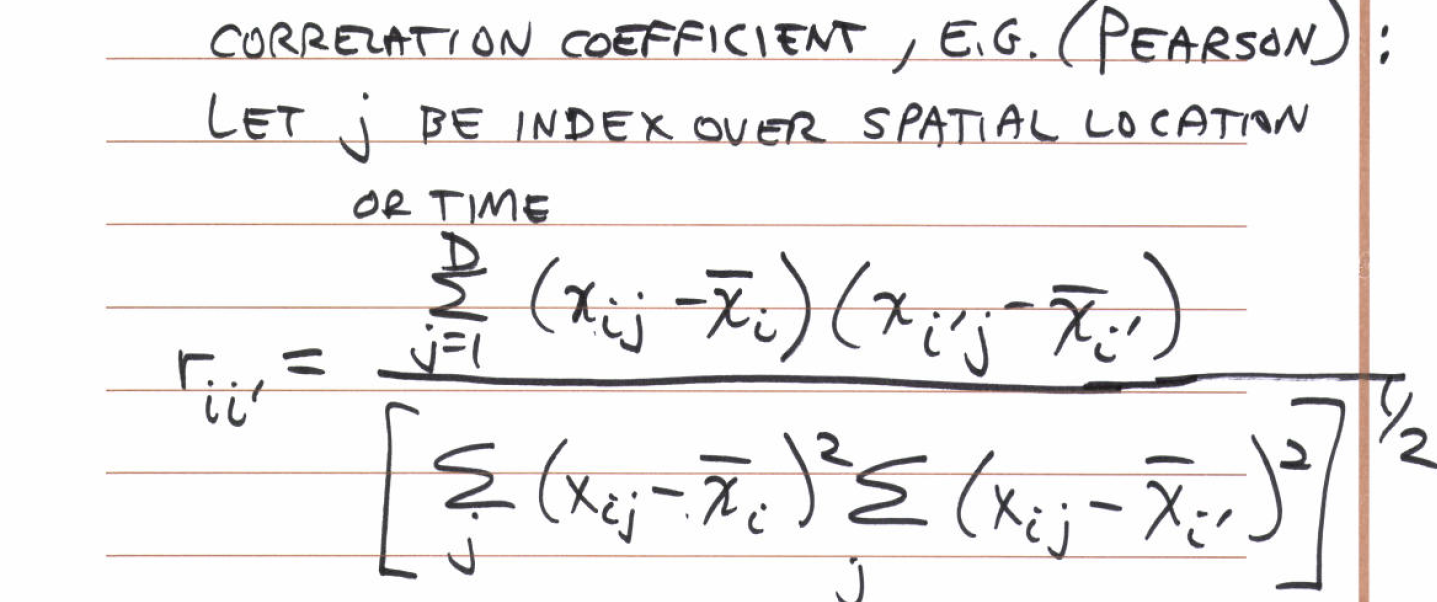 CORRELATION COEFFICIENT, E.G. (PEARSON):
LET j BE INDEX OVER SPATIAL LOCATION
OR TIME
r_{ii'} = \frac{\sum_{j=1}^{D} (x_{ij} - \overline{x}_i)(x_{i'j} - \overline{x}_{i'})}{[\sum_j (x_{ij} - \overline{x}_i)^2 \sum_j (x_{ij} - \overline{x}_{i'})^2]^{1/2}}